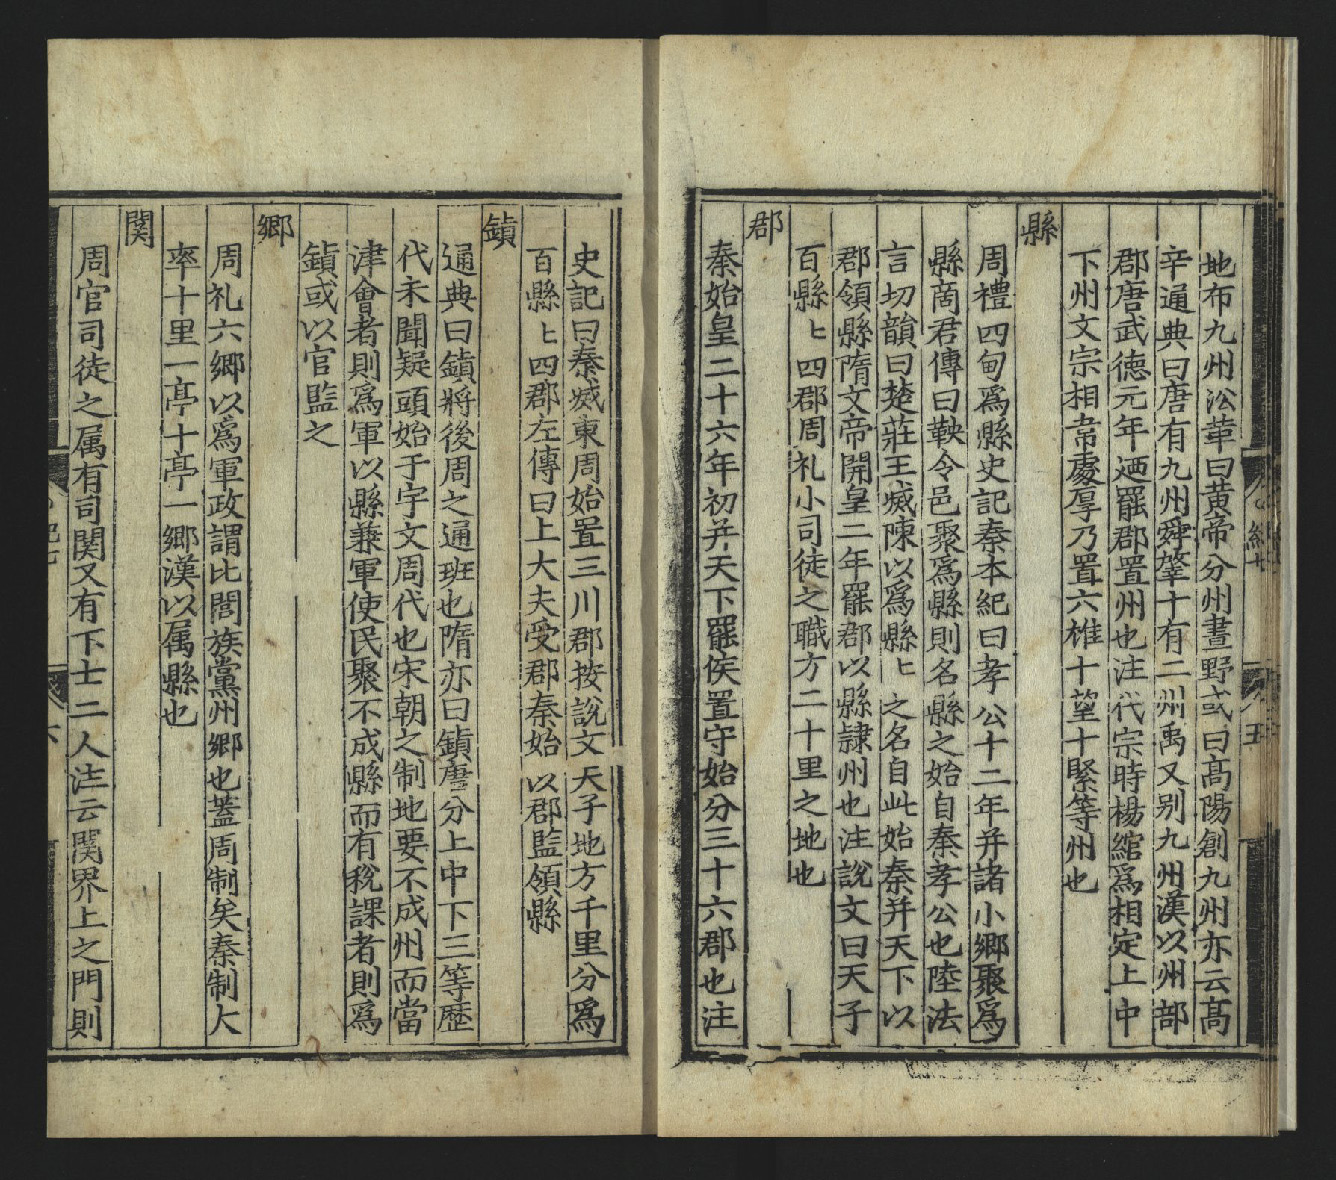 地布九州㳂革曰黃帝分州畫野或曰髙陽創九州亦云髙
辛通典曰唐有九州舜肇十有二州禹又别九州漢以州部
郡唐武德元年迺罷郡置州也注代宗時楊綰爲相定上中
下州文宗相韋處厚乃置六雄十望十緊等州也
縣
周禮四甸爲縣史記秦本紀曰孝公十二年并諸小鄉聚爲
縣商君傳曰鞅令邑聚爲縣則名縣之始自秦孝公也陸法
言切韻曰楚莊王滅陳以爲縣〻之名自此始秦并天下以
郡領縣隋文帝開皇二年罷郡以縣隷州也注說文曰天子
百縣〻四郡周礼小司徒之職方二十里之地也
郡
秦始皇二十六年初并天下罷侯置守始分三十六郡也注
史記曰秦滅東周始置三川郡按說文天子地方千里分爲
百縣〻四郡左傳曰上大夫受郡秦始以郡監領縣
鎮
通典曰鎮將後周之通班也隋亦曰鎮唐分上中下三等歷
代未聞疑頭始于宇文周代也宋朝之制地要不成州而當
津會者則爲軍以縣兼軍使民聚不成縣而有稅課者則爲
鎮或以官監之
鄉
周礼六鄉以爲軍政謂比閭族黨州鄉也蓋周制矣秦制大
率十里一亭十亭一鄉漢以属縣也
関
周官司徒之属有司関又有下士二人注云関界上之門則